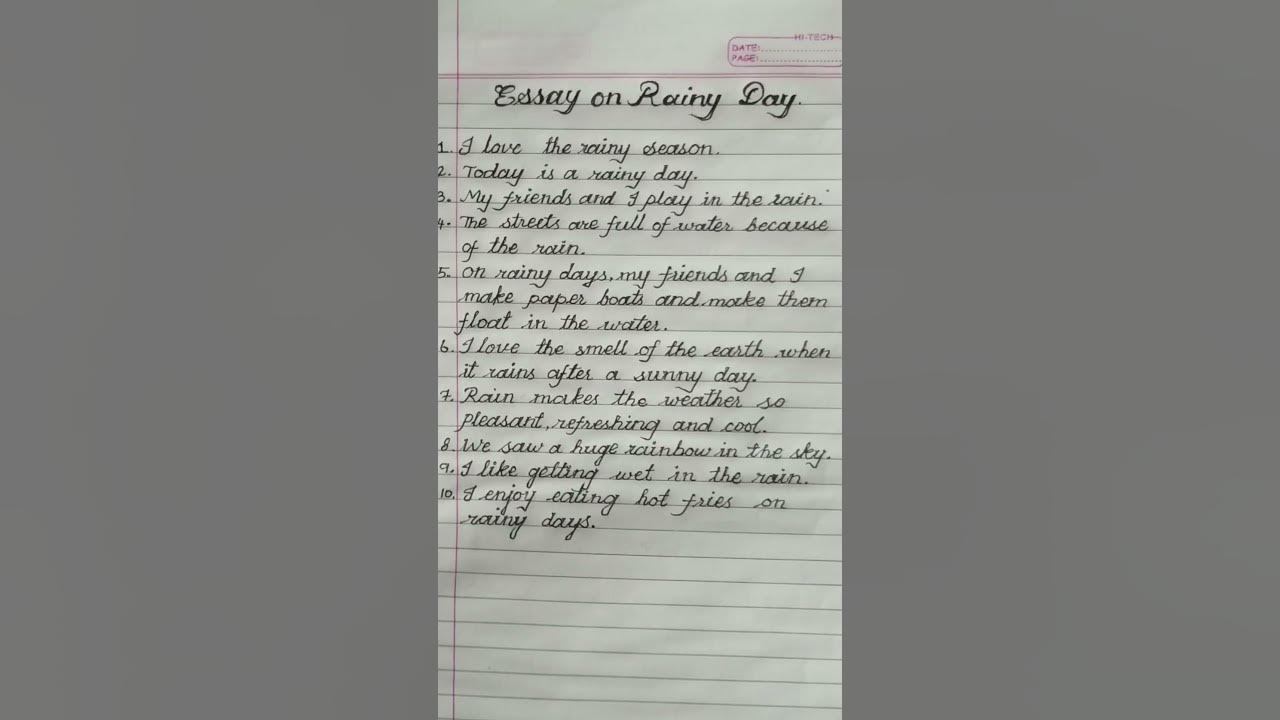 HI-TECH
DATE:
PAGE:
Essay on Rainy Day.
1. I love the rainy season.
2. Today is a rainy day.
3. My friends and I play in the rain.
4. The streets are full of water because
of the rain.
5. on rainy days, my friends and I
make paper boats and make them
float in the water.
6. I love the smell of the earth when
it rains after a sunny day.
7. Rain makes the weather so
pleasant, refreshing and cool.
8. We saw a huge rainbow in the sky.
9. I like getting wet in the rain.
10. I enjoy eating hot fries on
rainy days.